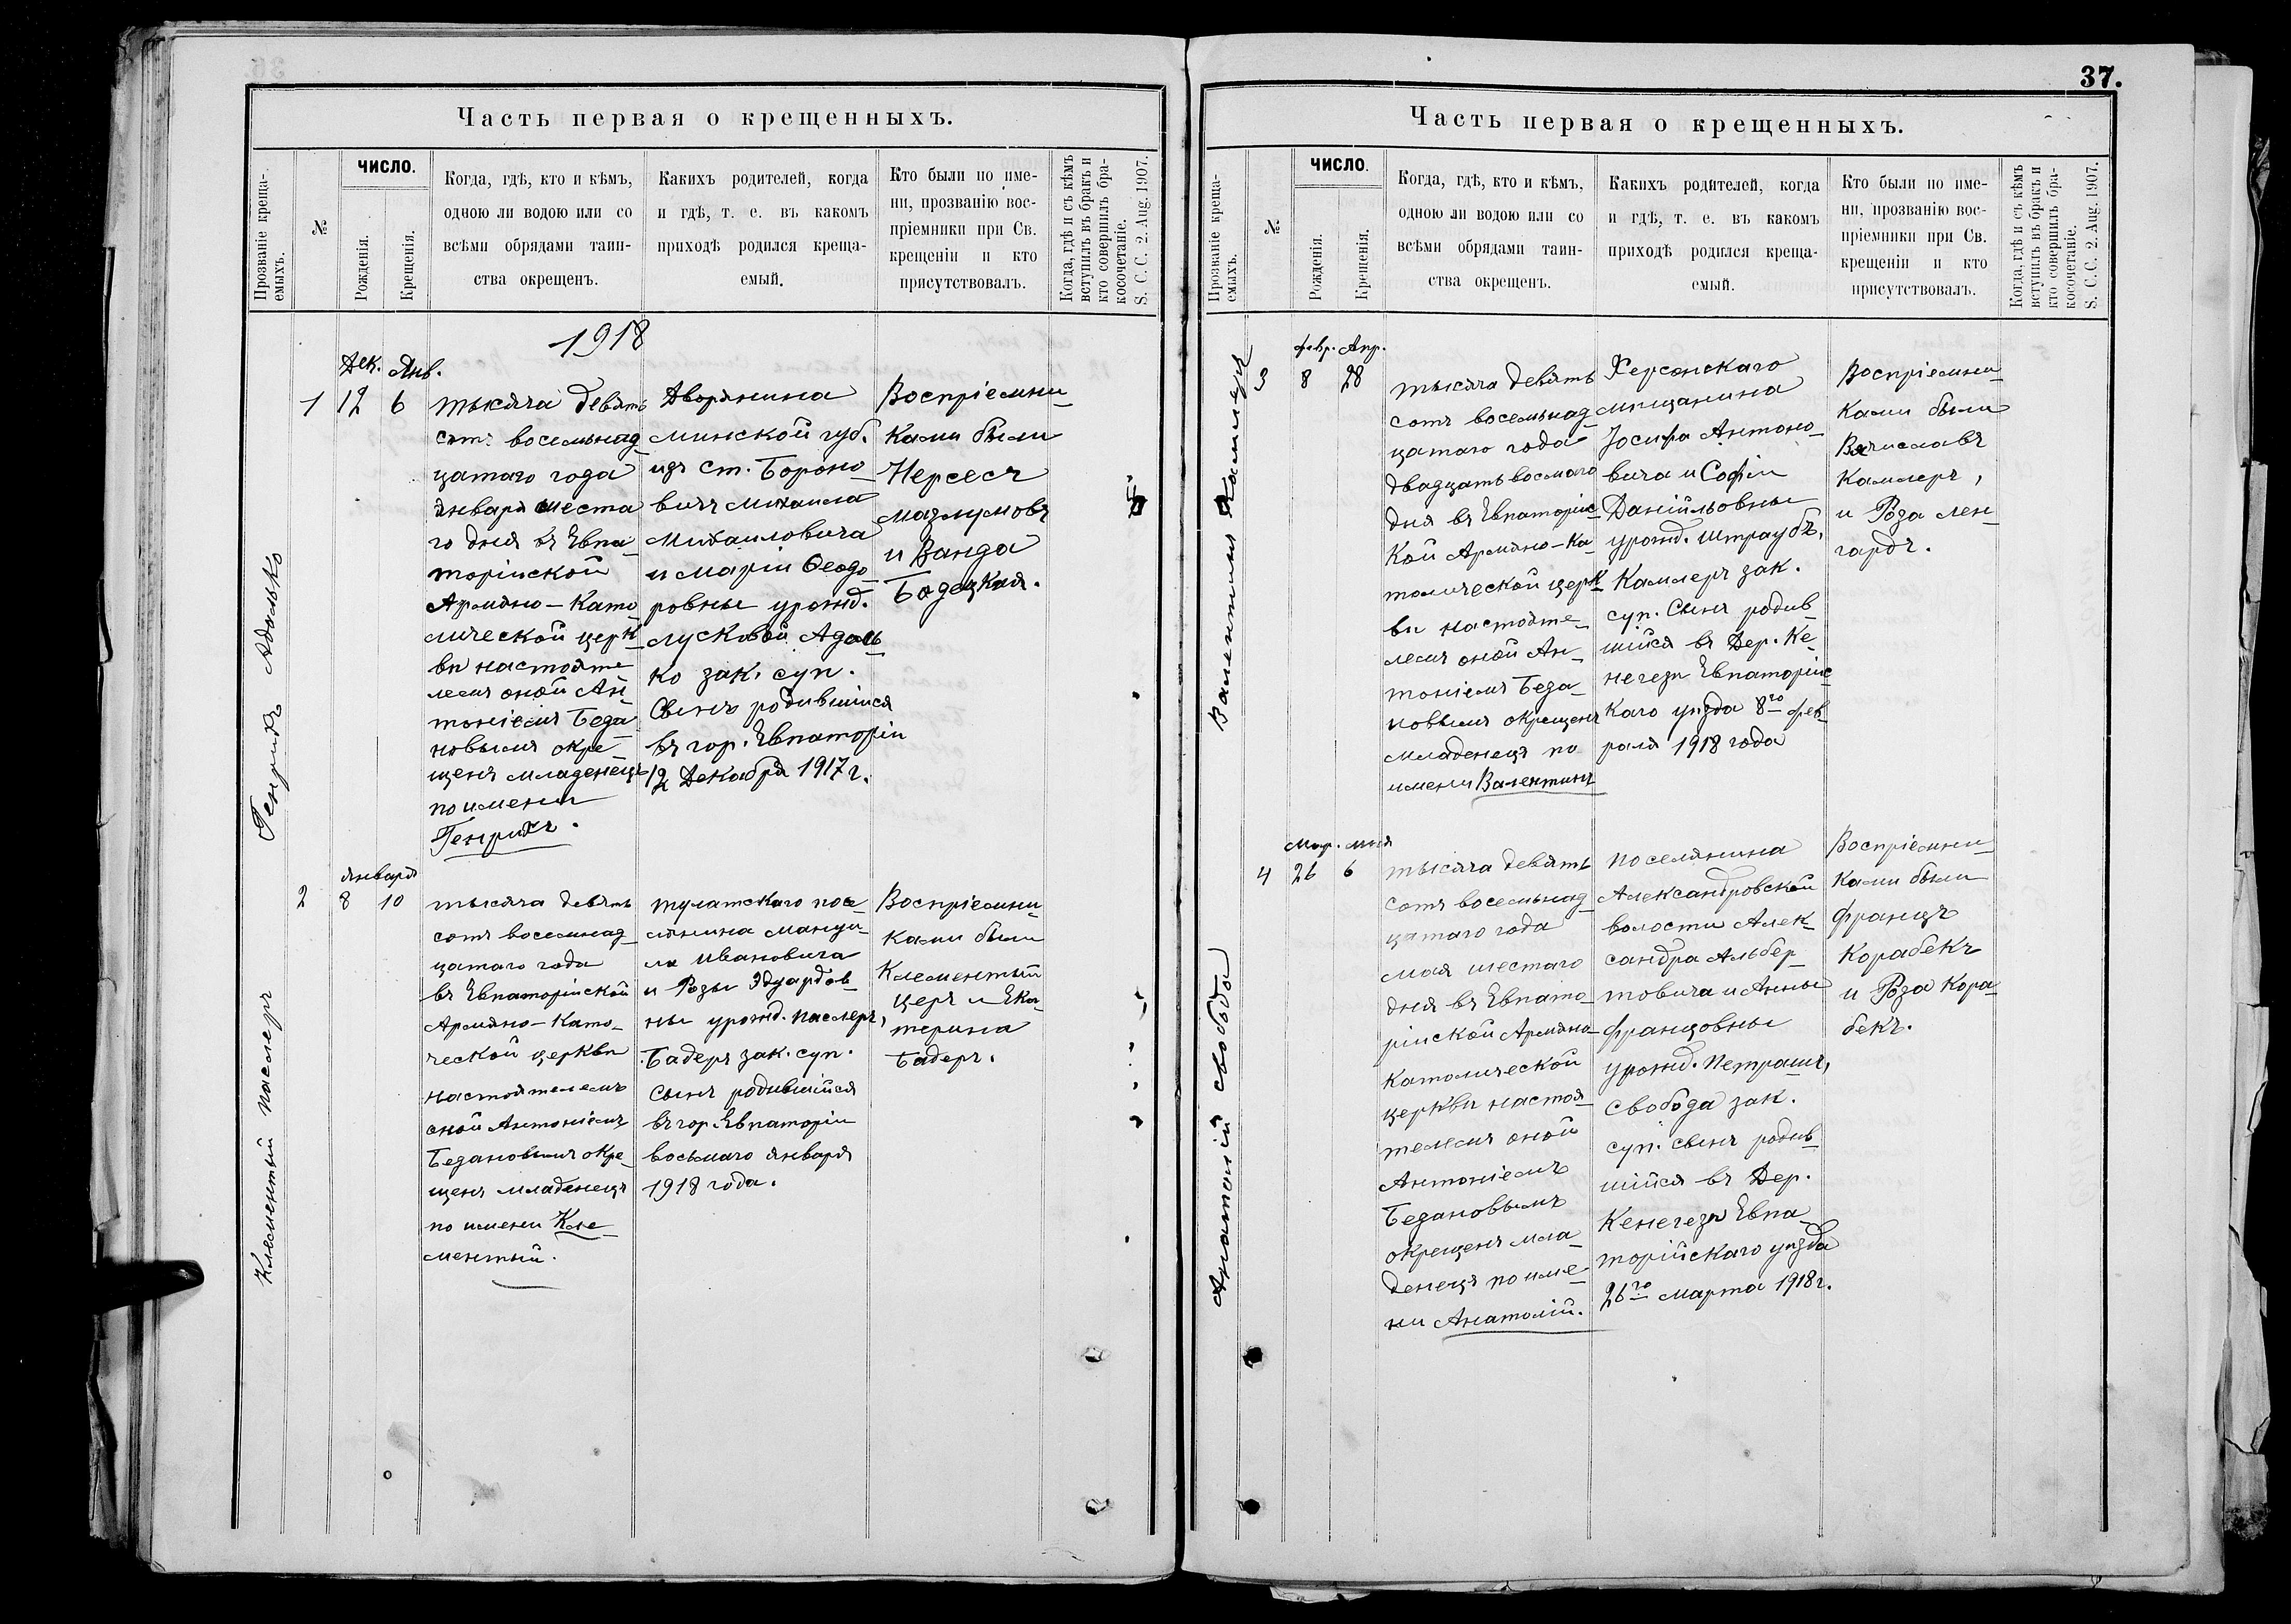 Часть первая о крещенныхъ.
Прозваніе креща-
емыхъ.
№
ЧИСЛО.
Рожденія.
Крещенія.
Когда, гдѣ, кто и кѣмъ,
одною ли водою или со
всѣми обрядами таин-
ства окрещенъ.
Какихъ родителей, когда
и гдѣ, т. е. въ какомъ
приходѣ родился креща-
емый.
Кто были по име-
ни, прозванію вос-
пріемники при Св.
крещеніи и кто
присутствовалъ.
Когда, гдѣ и съ кѣмъ
вступилъ въ бракъ и
кто совершилъ бра-
косочетаніе.
S. C. C. 2. Aug. 1907.
1918
Генрихъ Адолько
1
Дек. Янв.
12 6
тысяча девять
сотъ восемьнад
цатаго года
января шеста
го дня въ Евпа
торійской
Армяно-Като
лической церк
ви настояте
лемъ оной Ан
тоніемъ Беда
новымъ окре
щенъ младенецъ
по имени
Генрихъ.
Дворянина
Минской губ.
изъ ст. Бороно
вичъ Михаила
Михаиловича
и Маріи Ѳеодо
ровны урожд.
Лусковой Адоль
ко зак. суп.
Сынъ родившійся
въ гор. Евпаторіи
12 Декабря 1917 г.
Воспріемни
ками были
Нерсесъ
Мазлумовъ
и Ванда
Бодецкая.
Клементый Паслеръ
2
января
8 10
тысяча девять
сотъ восемнад
цатаго года
въ Евпаторійской
Армяно-Като-
ческой церкви
настоятелемъ
оной Антоніемъ
Бедановымъ окре
щенъ младенецъ
по имени Кле
ментый.
тулатскаго посе
лянина Мануи
ла Ивановича
и Розы Эдуардов
ны урожд. Паслеръ,
Бадеръ зак. суп.
Сынъ родившійся
въ гор. Евпаторіи
восьмаго января
1918 года.
Воспріемни
ками были
Клементый
Церъ и Ека
терина
Бадеръ.
37.
Часть первая о крещенныхъ.
Прозваніе креща-
емыхъ.
№
ЧИСЛО.
Рожденія.
Крещенія.
Когда, гдѣ, кто и кѣмъ,
одною ли водою или со
всѣми обрядами таин-
ства окрещенъ.
Какихъ родителей, когда
и гдѣ, т. е. въ какомъ
приходѣ родился креща-
емый.
Кто были по име-
ни, прозванію вос-
пріемники при Св.
крещеніи и кто
присутствовалъ.
Когда, гдѣ и съ кѣмъ
вступилъ въ бракъ и
кто совершилъ бра-
косочетаніе.
S. C. C. 2. Aug. 1907.
Валентинъ Каммеръ
3
февр. Апр.
8 28
тысяча девять
сотъ восемьнад
цатаго года
двадцать восмаго
дня въ Евпаторійс
кой Армяно-Ка
толической церк
ви настояте
лемъ оной Ан
тоніемъ Беда
новымъ окрещенъ
младенецъ по
имени Валентинъ
Херсонскаго
мещанина
Іосифа Антоно
вича и Софіи
Даніильовны
урожд. Штраубъ,
Каммеръ зак.
суп. Сынъ родив
шійся въ Дер. Ке
негезъ Евпаторійс
каго уѣзда 8го фев
раля 1918 года
Воспріемни
ками были
Вячиславъ
Каммеръ,
и Роза Лен
гардъ.
Анатолій Свобода
4
Мар. мая
26 6
тысяча девять
сотъ восемьнад
цатаго года
мая шестаго
дня въ Евпато
рійской Армяно
Католической
церкви настоя
телемъ оной
Антоніемъ
Бедановымъ
окрещенъ мла
денецъ по име
ни Анатолій.
поселянина
Александровской
волости Алек
сандра Альбер
товича и Анны
Францовны
урожд. Петрашъ,
Свобода зак.
суп. сынъ родив
шійся въ Дер.
Кенегезъ Евпа
торійскаго уѣзда
26го марта 1918 г.
Воспріемни
ками были
Францъ
Корабекъ
и Роза Кора
бекъ.